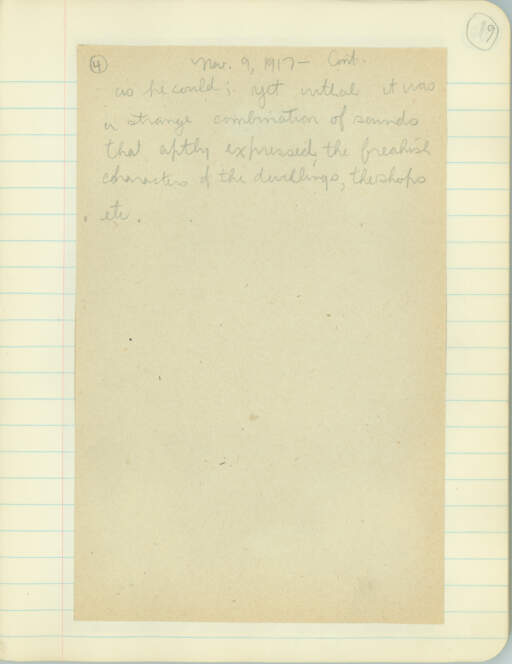 19
4 Nov. 9, 1917 - Cont.
as he could; yet withal it was
a strange combination of sounds
that aptly expressed, the freakish
characters of the dwellings, the shops
etc.